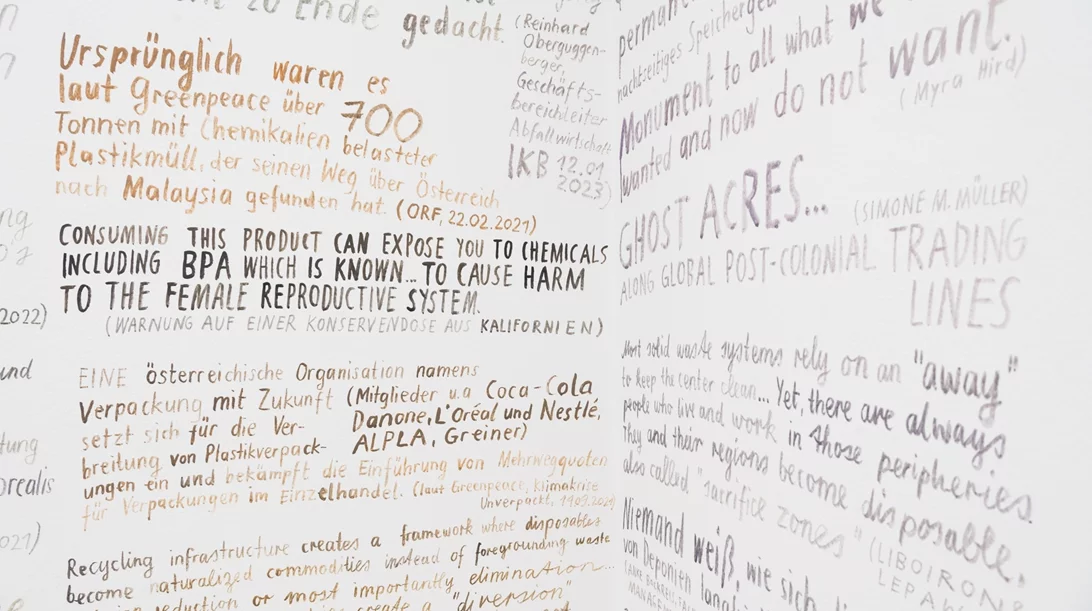 zu Ende gedacht.
(Reinhard
Oberguggen-
berger,
Geschäfts-
bereichleiter
Abfallwirtschaft
IKB 12.01
2023)
Ursprünglich waren es
laut Greenpeace über 700
Tonnen mit Chemikalien belasteter
Plastikmüll, der seinen Weg über Österreich
nach Malaysia gefunden hat. (ORF, 22.02.2021)
CONSUMING THIS PRODUCT CAN EXPOSE YOU TO CHEMICALS
INCLUDING BPA WHICH IS KNOWN... TO CAUSE HARM
TO THE FEMALE REPRODUCTIVE SYSTEM.
(WARNUNG AUF EINER KONSERVENDOSE AUS KALIFORNIEN)
EINE österreichische Organisation namens
Verpackung mit Zukunft (Mitglieder u.a Coca-Cola
setzt sich für die Ver- Danone, L'Oréal und Nestlé,
breitung von Plastikverpack- ALPLA, Greiner)
ungen ein und bekämpft die Einführung von Mehrwegquoten
für Verpackungen im Einzelhandel. (laut Greenpeace, Klimakrise
Unverpackt,
Recycling infrastructure creates a framework where disposables
become naturalized commodities instead of foregrounding waste
reduction or most importantly elimination...
create a "diversion"
2022)
und
tung
orealis
021)
nachzeitiges
Monument to all what we
wanted and now do not want.
(Myra Hird)
GHOST ACRES... (SIMONE M. MÜLLER)
ALONG GLOBAL POST-COLONIAL TRADING
LINES
Most solid waste systems rely on an "away"
to keep the center clean... Yet, there are always
people who live and work in those peripheries.
They and their regions become disposable,
also called "sacrifice zones" (LIBOIRON &
Niemand weiß, wie sich
von Deponien